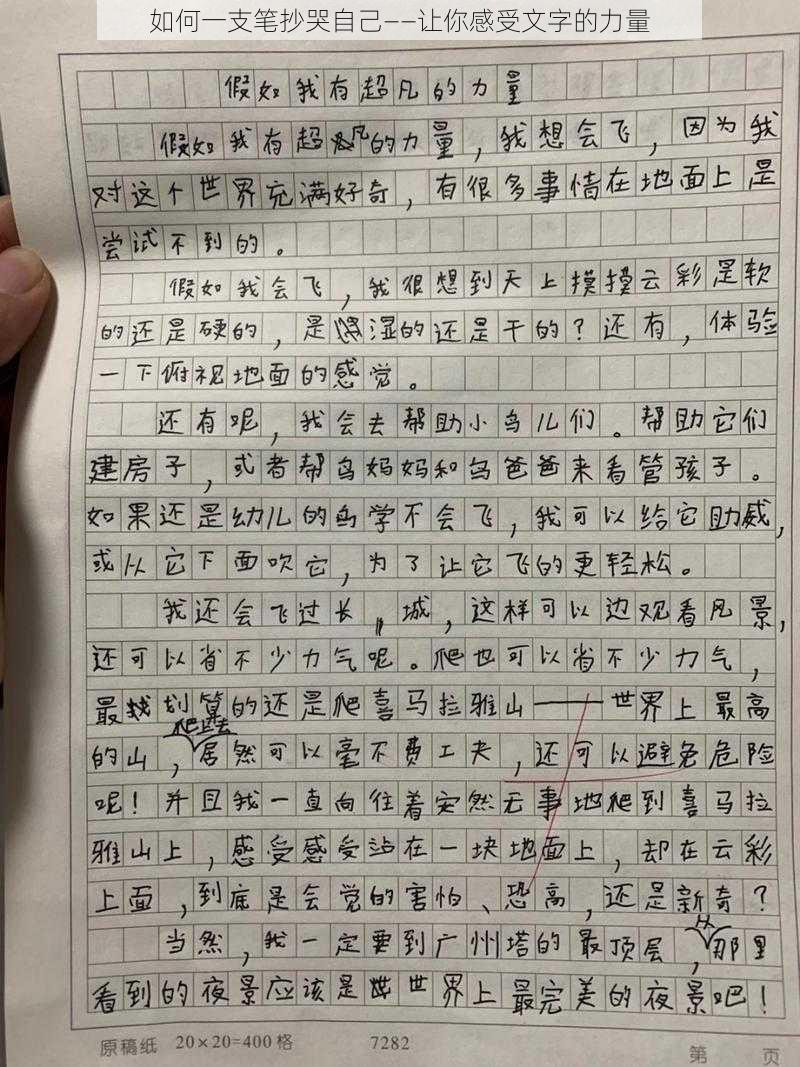 如何一支笔抄哭自己——让你感受文字的力量
假如我有超凡的力量
假如我有超凡的力量，我想会飞，因为我
对这个世界充满好奇，有很多事情在地面上是
尝试不到的。
假如我会飞，我很想到天上摸摸云彩是软
的还是硬的，是湿的还是干的？还有，体验
一下俯视地面的感觉。
还有呢，我会去帮助小鸟儿们。帮助它们
建房子，或者帮鸟妈妈和鸟爸爸来看管孩子。
如果还是幼儿的鸟学不会飞，我可以给它助威，
或从它下面吹它，为了让它飞的更轻松。
我还会飞过长城，这样可以边观看风景，
还可以省不少力气呢。爬也可以省不少力气，
最划算的还是爬喜马拉雅山——世界上最高
爬过去
的山，居然可以毫不费工夫，还可以避免危险
呢！并且我一直向往着安然无事地爬到喜马拉
雅山上，感受感受站在一块地面上，却在云彩
上面，到底是会觉的害怕、恐高，还是新奇？
从
当然，我一定要到广州塔的最顶层，那里
看到的夜景应该是世界上最完美的夜景吧！
原稿纸 20×20=400格 7282 第 页